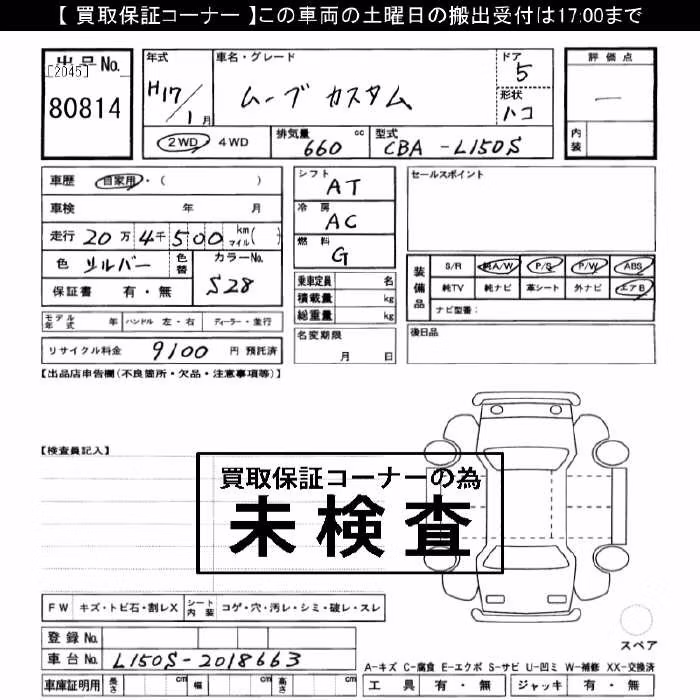 【 買取保証コーナー 】この車両の土曜日の搬出受付は17:00まで
出品No.
[2045]
80814
年式
H17/1月
車名・グレード
ムーブ カスタム
ドア
5
形状
ハコ
評価点
—
内装
2WD・4WD
排気量
660 cc
型式
CBA-L150S
車歴 自家用・( )
車検 年 月
走行 20万4千500 km マイル( )
色 シルバー 色替 カラーNo. S28
保証書 有・無
モデル年式 年 ハンドル 左・右 ディーラー・並行
リサイクル料金 9100 円 預託済
シフト
AT
冷房
AC
燃料
G
乗車定員 名
積載量 kg
総重量 kg
名変期限
月 日
セールスポイント
装備品
S/R 純A/W P/S P/W ABS
純TV 純ナビ 革シート 外ナビ エアB
ナビ型番:
後日品
【出品店申告欄(不良箇所・欠品・注意事項等)】
【検査員記入】
買取保証コーナーの為
未検査
FW キズ・トビ石・割レX シート内装 コゲ・穴・汚レ・シミ・破レ・スレ
登録No.
車台No. L150S-2018663
車庫証明用 長さ cm 幅 cm 高さ cm
スペア
A-キズ C-腐食 E-エクボ S-サビ U-凹ミ W-補修 XX-交換済
工具 有・無 ジャッキ 有・無